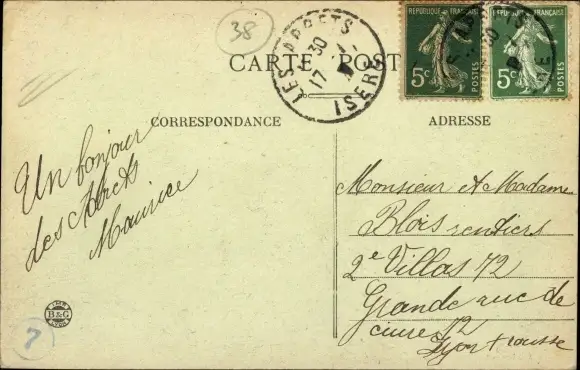 38
CARTE POST
LES ABRETS
17 30
ISERE
RÉPUBLIQUE FRANÇAISE
5c POSTES
RÉPUBLIQUE FRANÇAISE
5c POSTES
CORRESPONDANCE
ADRESSE
Un bonjour
des Abrets
Maurice
Monsieur et Madame
Blois rentiers
2e Villas 72
Grande rue de
cuire 72
Lyon + rousse
IMP.
B&G
LYON
7